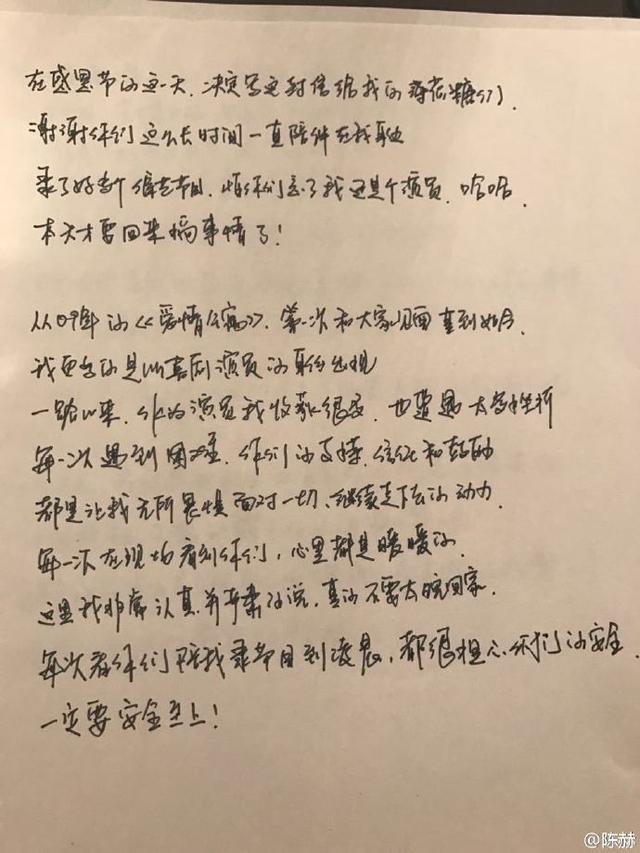 在感恩节的这一天，决定写这封信给我的薄荷糖们，
谢谢你们这么长时间一直陪伴在我身边
录了好多个综艺节目，怕你们忘了我还是个演员，哈哈，
本天才要回来搞事情了！
从09年的《爱情公寓》，第一次和大家见面直到如今，
我更多的是以喜剧演员的身份出现
一路以来，作为演员我收获很多，也遭遇太多挫折
每一次遇到困难，你们的支持、信任和鼓励
都是让我无所畏惧面对一切、继续走下去的动力，
每一次在现场看到你们，心里都是暖暖的，
这里我非常认真并严肃的说，真的不要太晚回家，
每次看你们陪我录节目到凌晨，都很担心你们的安全
一定要安全至上！
@陈赫